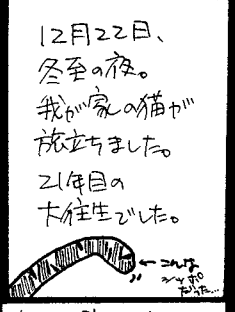 12月22日、
冬至の夜。
我が家の猫が
旅立ちました。
21年目の
大往生でした。
←こんな
シッポ
だった…